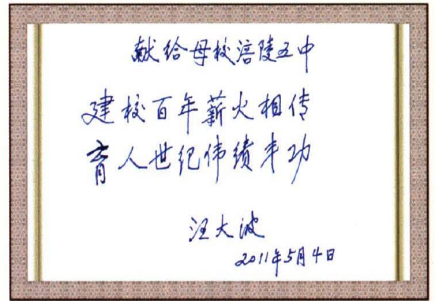 献给母校涪陵五中
建校百年薪火相传
育人世纪伟绩丰功
汪大波
2011年5月4日